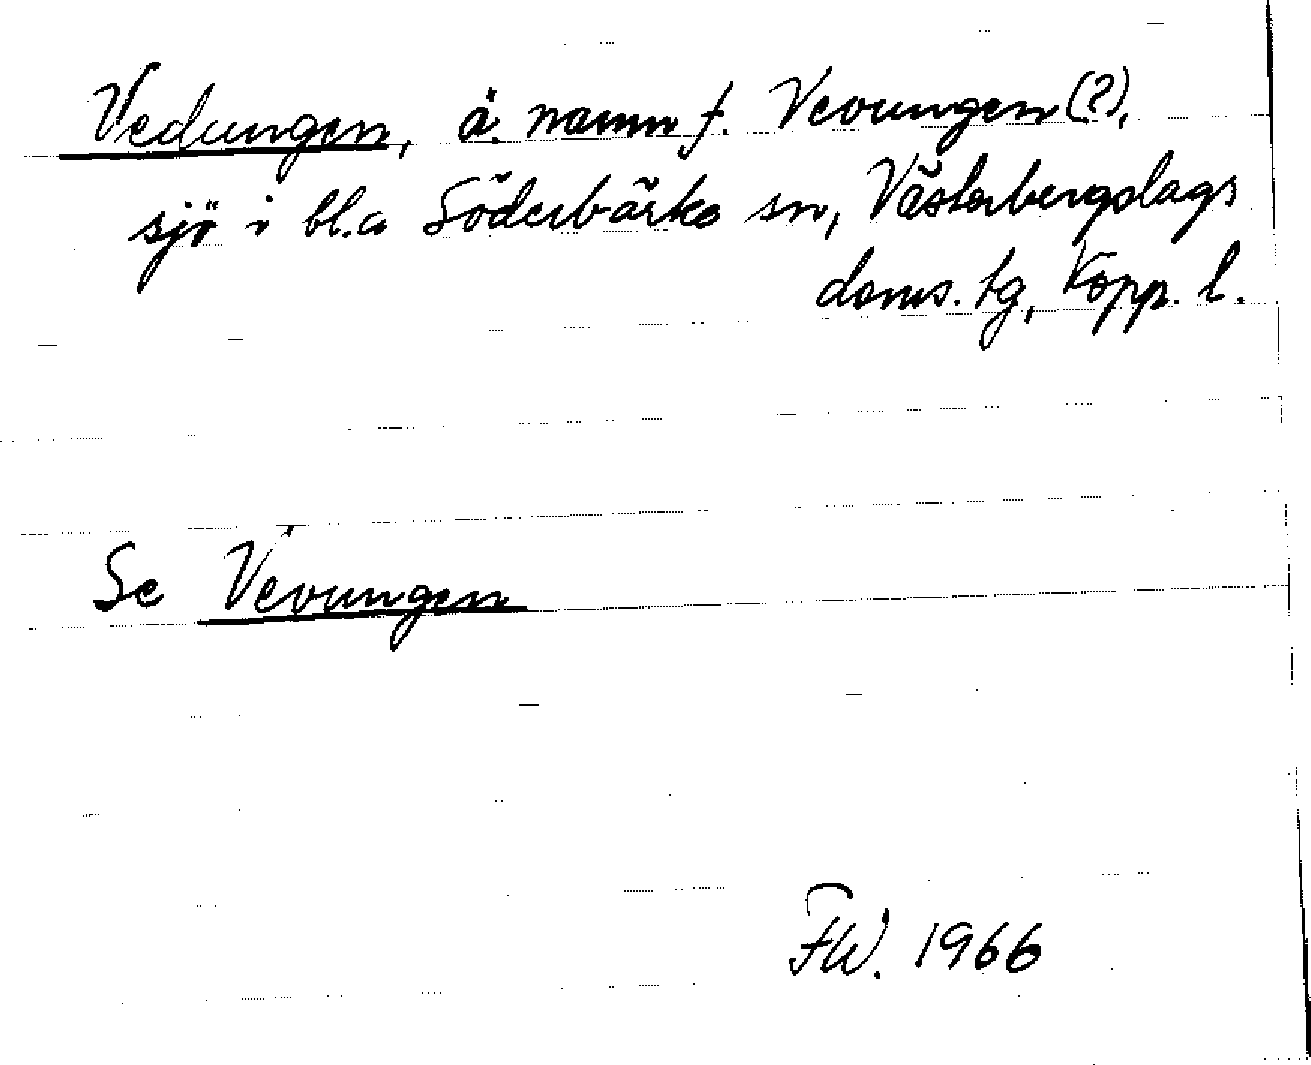 Vedungen, ä. namn f. Vevungen (?),
sjö i bl.a Söderbärke sn, Västerbergslags
doms. tg, Kopp. l.
Se Vevungen
FW. 1966